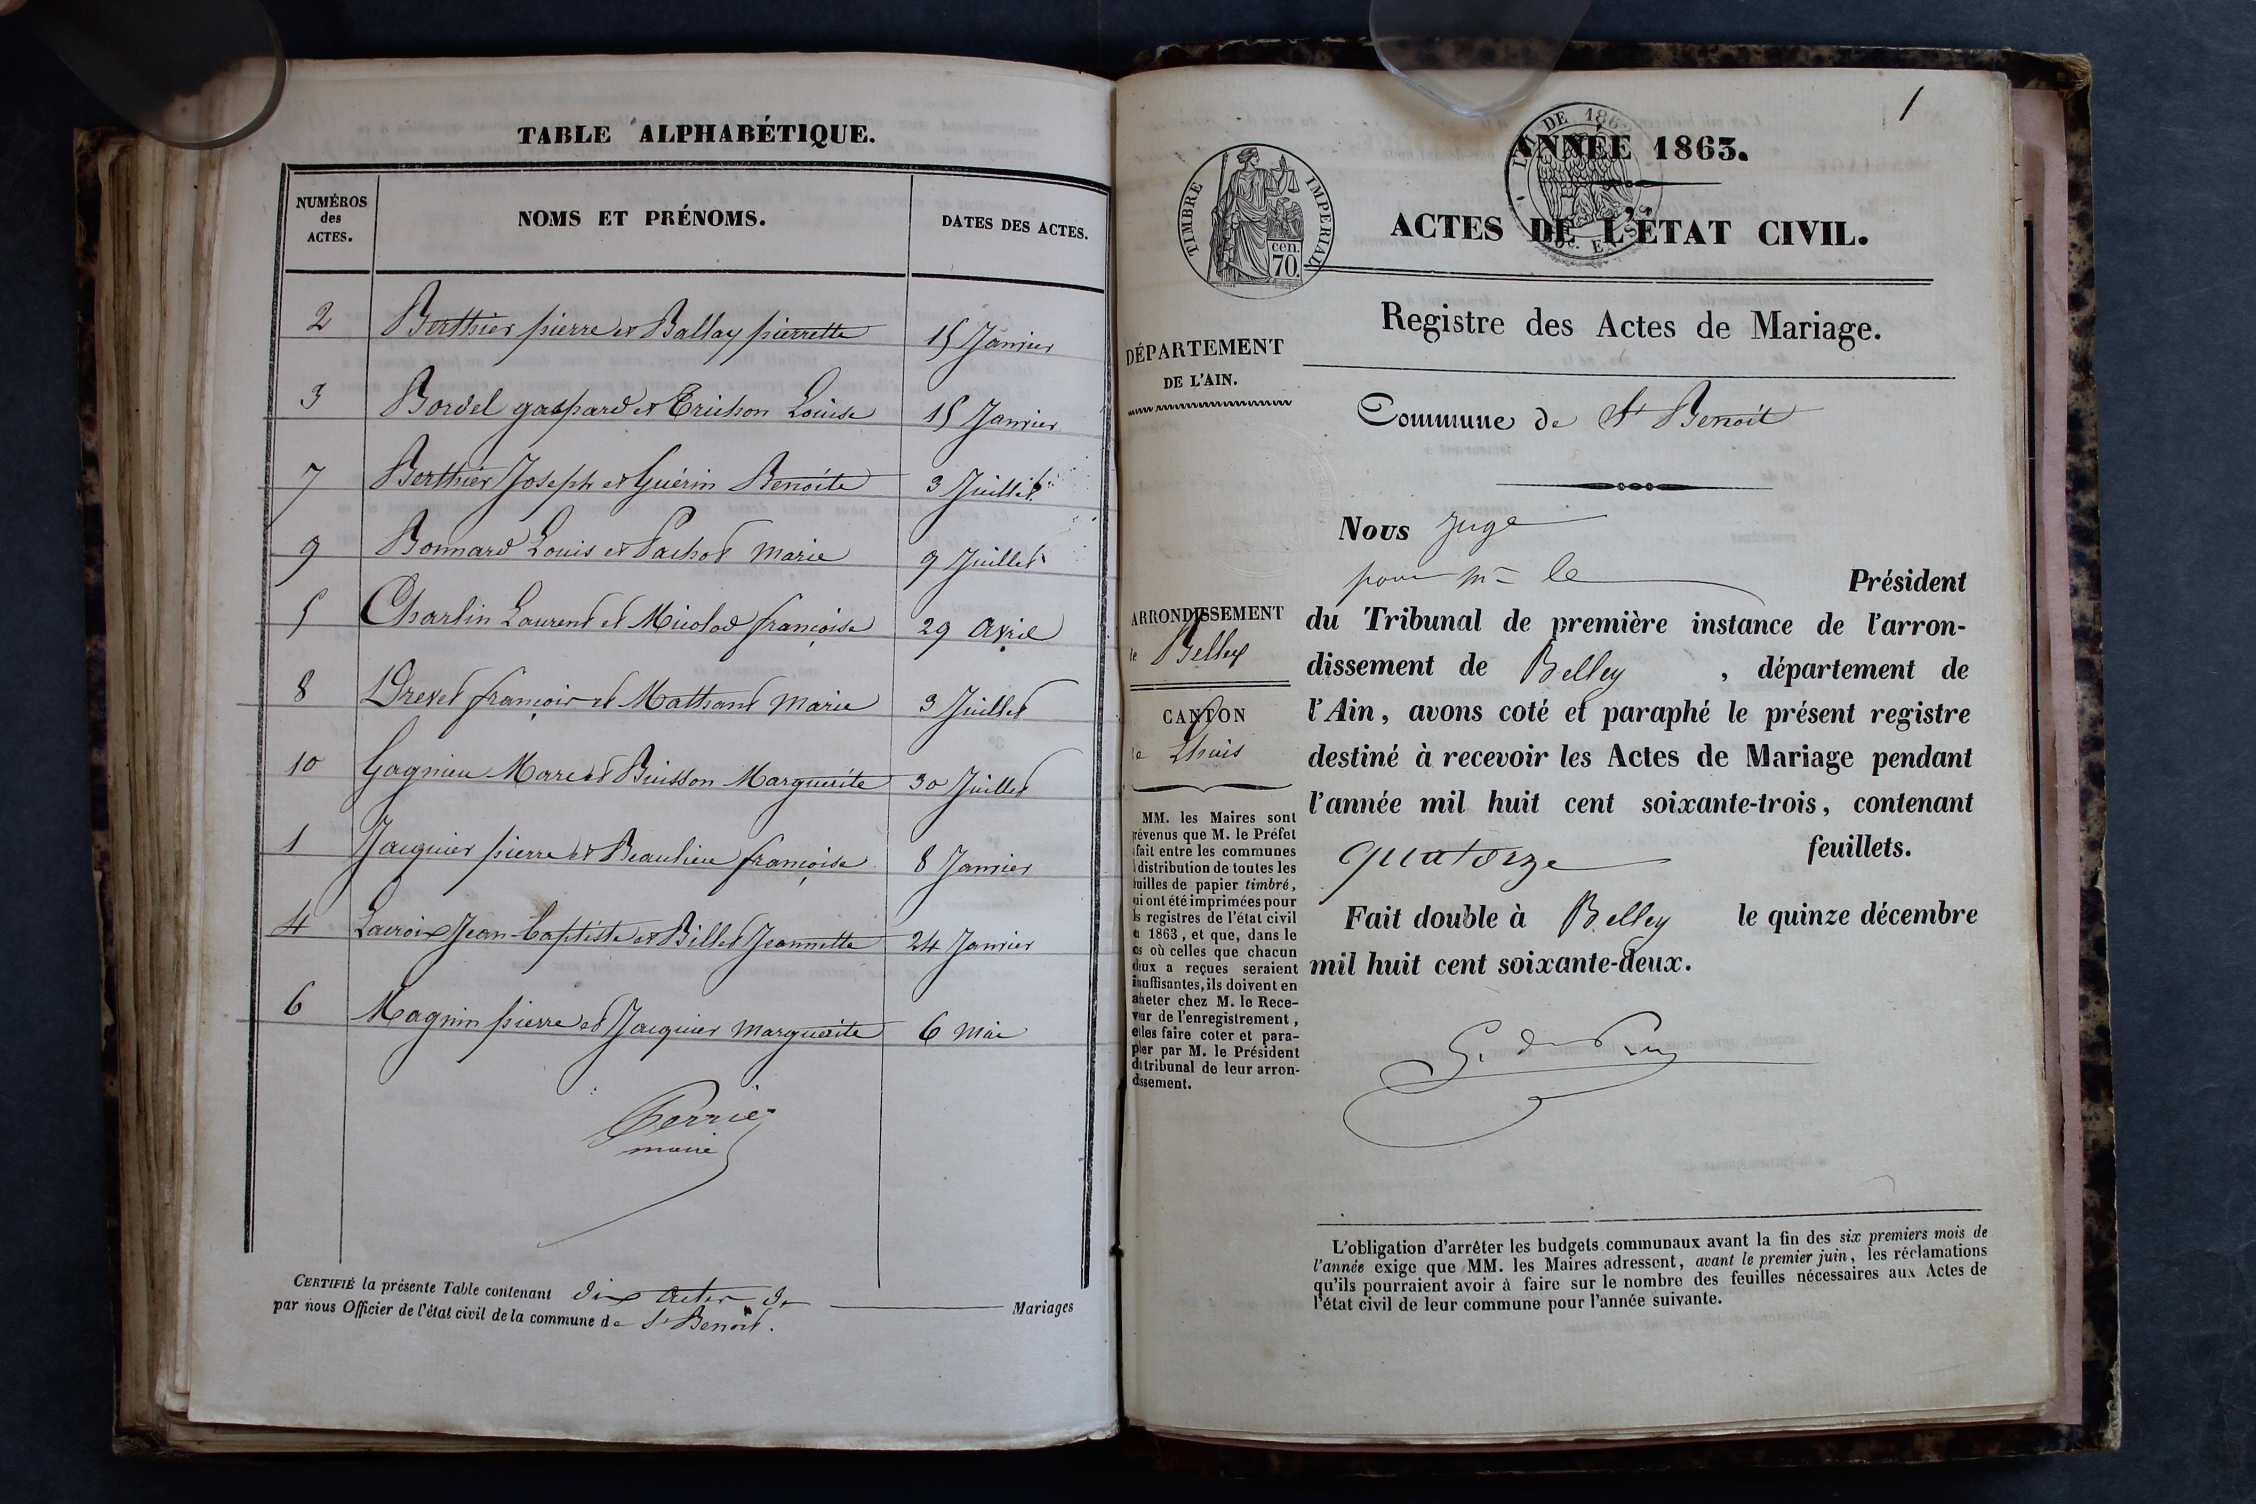 TABLE ALPHABÉTIQUE.
NUMÉROS des ACTES.
NOMS ET PRÉNOMS.
DATES DES ACTES.
2 Berthier pierre et Ballay pierrette 15 Janvier
3 Bordel gaspard et Trichon Louise 15 Janvier
7 Berthier Joseph et Guérin Benoite 3 Juillet
9 Bonnard Louis et Pachod Marie 9 Juillet
5 Charlin Laurent et Micolod françoise 29 Avril
8 Drevet françois et Mathant Marie 3 Juillet
10 Gagnieu Marc et Buisson Marguerite 30 Juillet
1 Jacquier pierre et Beaulieu françoise 8 Janvier
4 Lacroix Jean-Baptiste et Billet Jeannette 24 Janvier
6 Magnin pierre et Jacquier Marguerite 6 Mai
maire
CERTIFIÉ la présente Table contenant dix actes de Mariages
par nous Officier de l'état civil de la commune de St Benoit.
1
L'AN DE 186
TIMBRE IMPERIAL
70 cen.
ANNÉE 1863.
ACTES DE L'ÉTAT CIVIL.
Registre des Actes de Mariage.
DÉPARTEMENT
DE L'AIN.
Commune de St Benoit
Nous Juge
pour Mr le Président
ARRONDISSEMENT
de Belley
CANTON
de Lhuis
du Tribunal de première instance de l'arron-
dissement de Belley, département de
l'Ain, avons coté et paraphé le présent registre
destiné à recevoir les Actes de Mariage pendant
l'année mil huit cent soixante-trois, contenant
quatorze feuillets.
Fait double à Belley le quinze décembre
mil huit cent soixante-deux.
MM. les Maires sont
révenus que M. le Préfet
fait entre les communes
distribution de toutes les
uilles de papier timbré,
ui ont été imprimées pour
s registres de l'état civil
1863, et que, dans le
as où celles que chacun
deux a reçues seraient
insuffisantes, ils doivent en
acheter chez M. le Rece-
veur de l'enregistrement,
et les faire coter et para-
pher par M. le Président
du tribunal de leur arron-
dissement.
L'obligation d'arrêter les budgets communaux avant la fin des six premiers mois de
l'année exige que MM. les Maires adressent, avant le premier juin, les réclamations
qu'ils pourraient avoir à faire sur le nombre des feuilles nécessaires aux Actes de
l'état civil de leur commune pour l'année suivante.